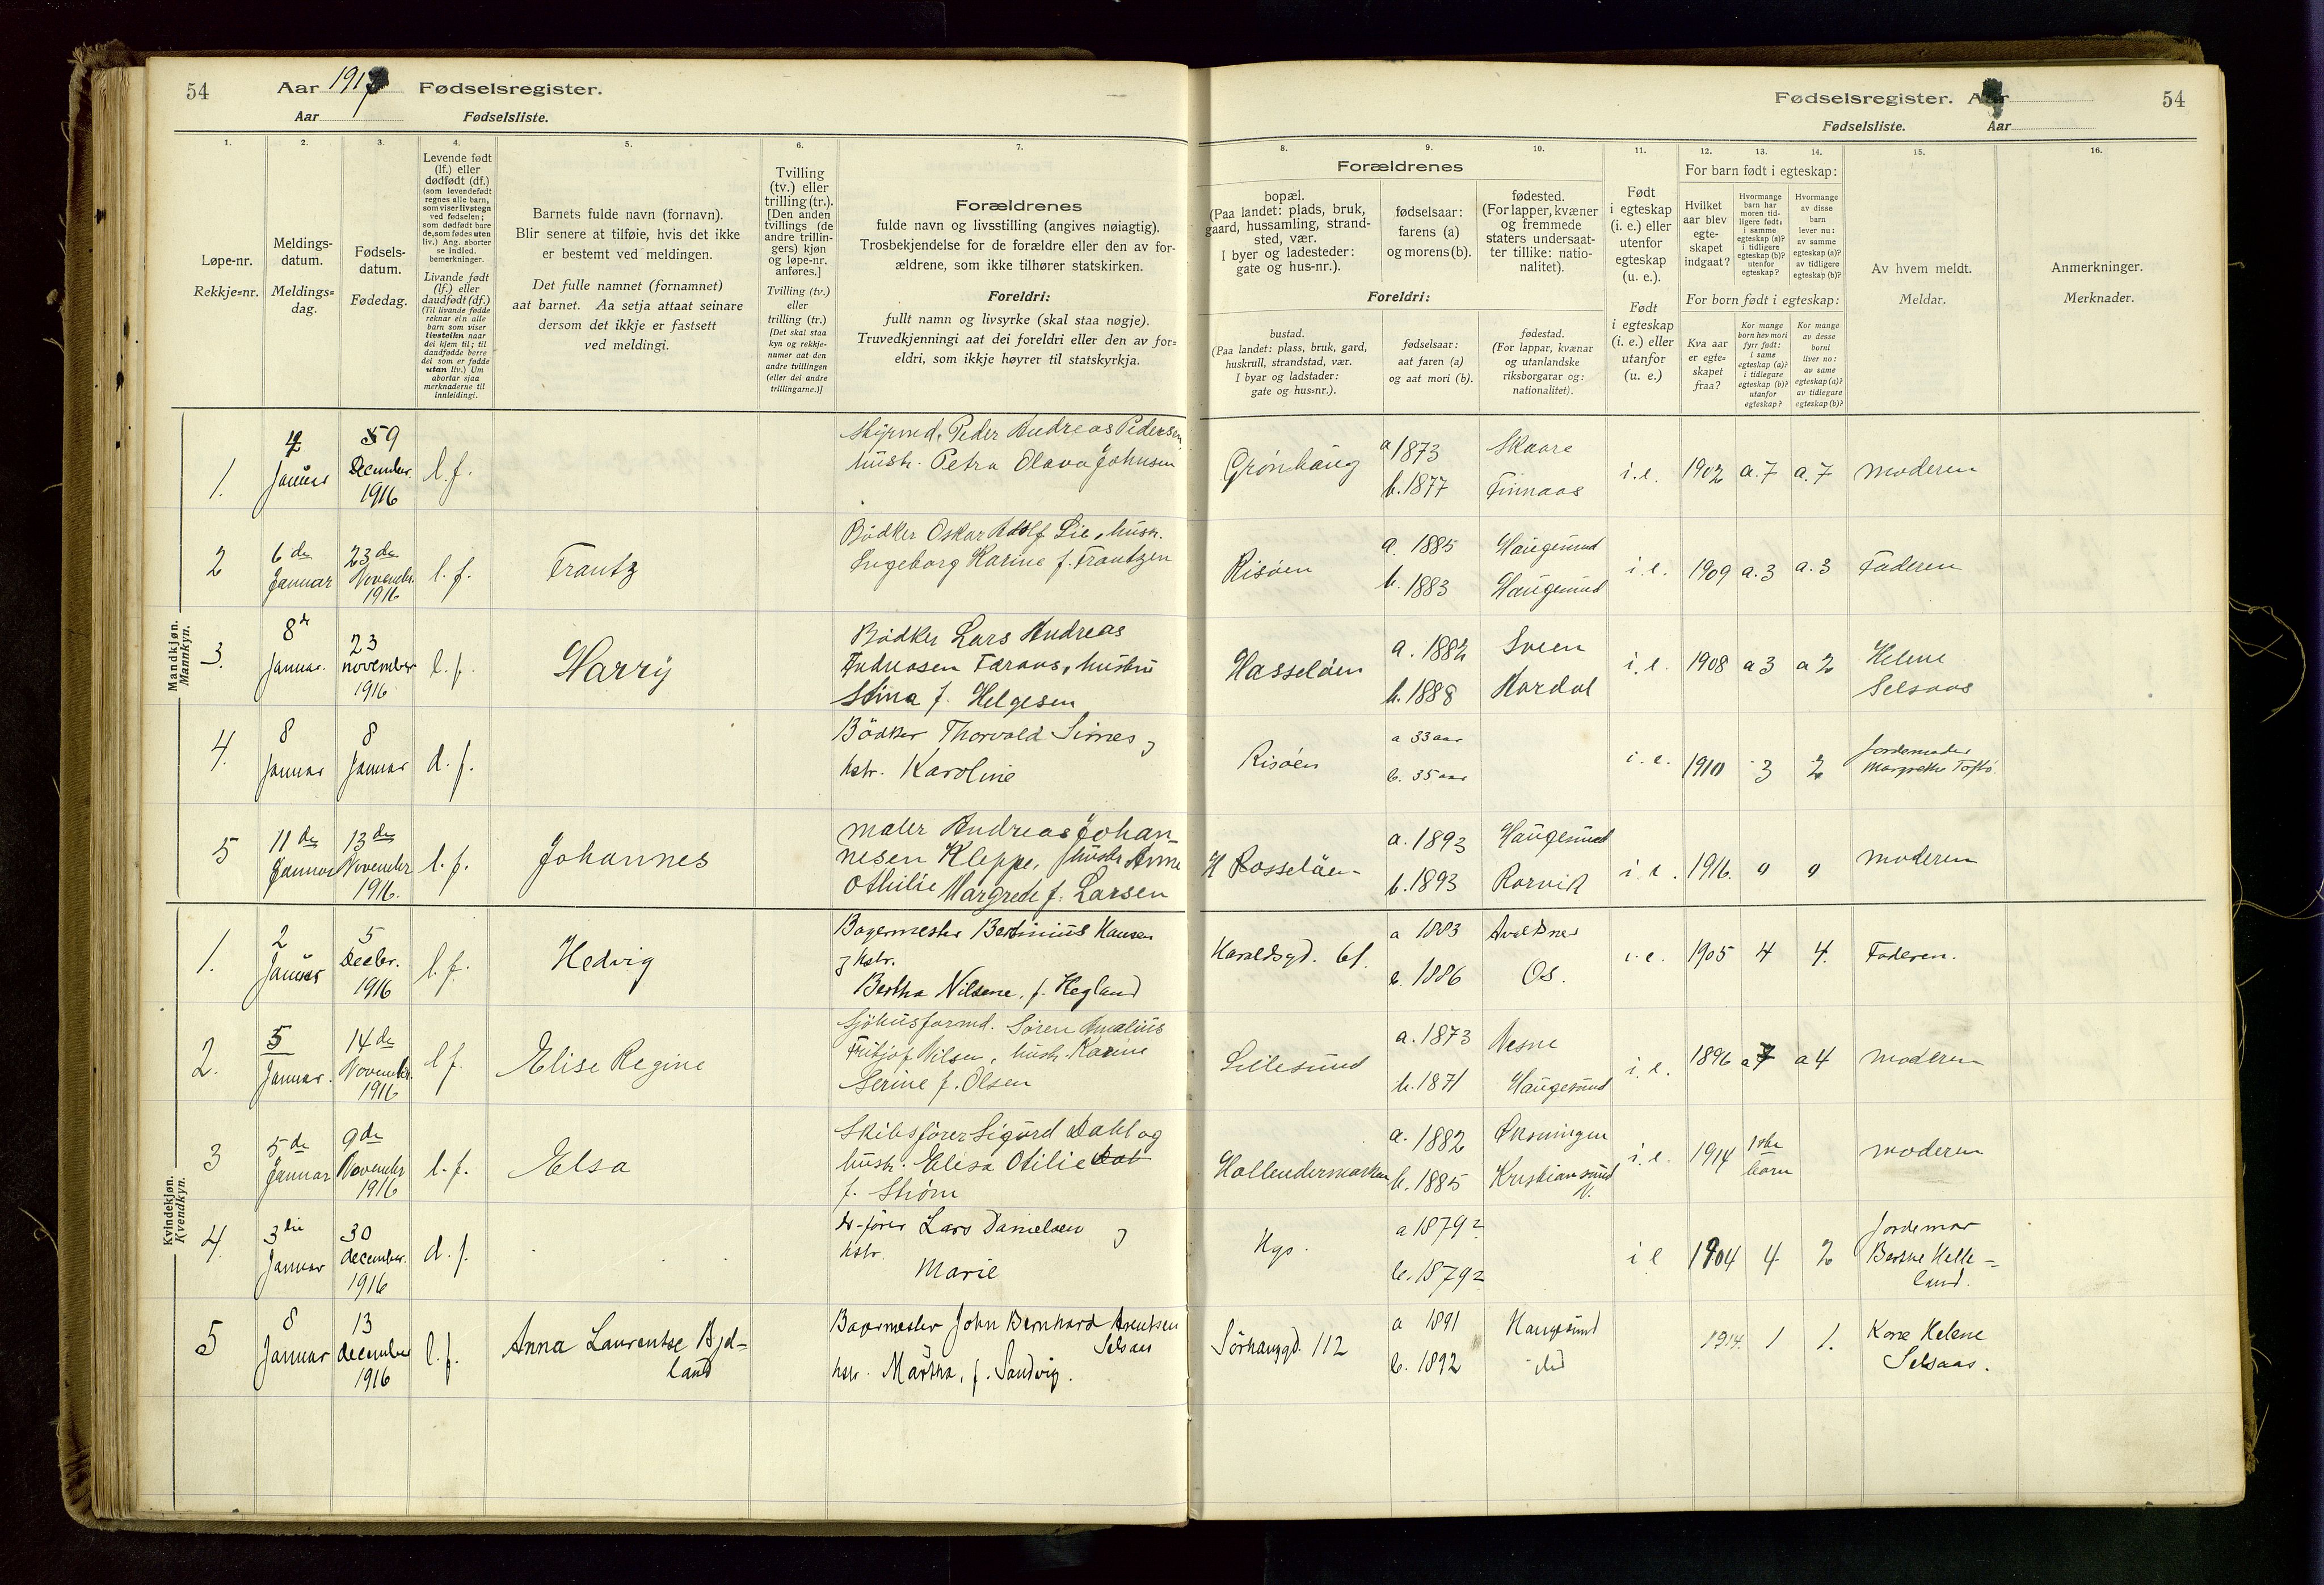 54 Aar 1917 Fødselsregister.
Aar Fødselsliste.
Fødselsregister. Aar 54
Fødselsliste. Aar
1. 2. 3. 4. 5. 6. 7. 8. 9. 10. 11. 12. 13. 14. 15. 16.
Løpe-nr.
Rekkje=nr.
Meldings-
datum.
Meldings-
dag.
Fødsels-
datum.
Fødedag.
Levende født
(lf.) eller
dødfødt (df.)
(som levendefødt
regnes alle barn,
som viser livstegn
ved fødselen;
som dødfødt bare
de, som fødes uten
liv.) Ang. aborter
se indled.
bemerkninger.
Livande født
(lf.) eller
daudfødt (df.)
(Til livande fødde
reknar ein alle
barn som viser
livsteikn naar
dei kjem til; til
daudfødde berre
dei som er fødde
utan liv.) Um
abortar sjaa
merknaderne til
innleidingi.
Barnets fulde navn (fornavn).
Blir senere at tilføie, hvis det ikke
er bestemt ved meldingen.
Det fulle namnet (fornamnet)
aat barnet. Aa setja attaat seinare
dersom det ikkje er fastsett
ved meldingi.
Tvilling
(tv.) eller
trilling (tr.).
[Den anden
tvillings (de
andre trillin-
gers) kjøn
og løpe-nr.
anføres.]
Tvilling (tv.)
eller
trilling (tr.)
[Det skal staa
kyn og rekkje-
numer aat den
andre tvillingen
(eller dei andre
trillingarne.)]
Forældrenes
fulde navn og livsstilling (angives nøiagtig).
Trosbekjendelse for de forældre eller den av for-
ældrene, som ikke tilhører statskirken.
Foreldri:
fullt namn og livsyrke (skal staa nøgje).
Truvedkjenningi aat dei foreldri eller den av for=
eldri, som ikkje høyrer til statskyrkja.
Forældrenes
bopæl.
(Paa landet: plads, bruk,
gaard, hussamling, strand-
sted, vær.
I byer og ladesteder:
gate og hus-nr.).
fødselsaar:
farens (a)
og morens (b).
fødested.
(For lapper, kvæner
og fremmede
staters undersaat-
ter tillike: natio-
nalitet).
Foreldri:
bustad.
(Paa landet: plass, bruk, gard,
huskrull, strandstad, vær.
I byar og ladstader:
gate og hus=nr.).
fødselsaar:
aat faren (a)
og aat mori (b).
fødestad.
(For lappar, kvænar
og utanlandske
riksborgarar og:
nationalitet).
Født
i egteskap
(i. e.) eller
utenfor
egteskap
(u. e.).
Født
i egteskap
(i. e.) eller
utanfor
(u. e.)
For barn født i egteskap:
Hvilket
aar blev
egte-
skapet
indgaat?
Hvormange
barn har
moren tid-
ligere født:
i samme
egteskap (a)?
i tidligere
egteskap (b)?
utenfor
egteskap?
Hvormange
av disse
barn
lever nu:
av samme
egteskap (a)?
av tidligere
egteskap (b)?
For born født i egteskap:
Kva aar
er egte=
skapet
fraa?
Kor mange
born hev mori
fyrr født:
i same
egteskap (a)?
i tidlegare
egteskap (b)?
utanfor
egteskap?
Kor mange
av desse
borni
liver no:
av same
egteskap (a)?
av tidlegare
egteskap (b)?
Av hvem meldt.
Meldar.
Anmerkninger.
Merknader.
Mandkjøn.
Mannkyn.
1. 2 Januar 9 December 1916 l.f.
Peder Andreas Pedersen
hustr. Petra Olava Johnsen
Grønhaug a 1873 Skaare
b. 1877 Finnaas
i.e. 1902 a. 7 a. 7 moderen
2 6de Januar 23de Novembr. 1916 l.f. Frantz
Bødker Oskar Adolf Lie, hustr.
Ingeborg Karine f. Frantzen
Risøen a. 1885 Haugesund
b. 1883 Haugesund
i.e. 1909 a. 3 a. 3 Faderen
3. 8de Januar. 23 november 1916 l.f. Harry
Bødker Lars Andreas
Andreasen Færaas, hustru
Stina f. Helgesen
Hasseløen a. 1882 Sveen
b. 1888 Aardal
i.e. 1908 a 3 a 2 Helene
Selsaas
4. 8 Januar 8 Januar d.f.
Bödker Thorvald Simes og
hstr. Karoline
Risöen a 33 aar
b. 35 aar
i.e. 1910 3 2 Jordemoder
Margrethe
5 11de Januar 13de November 1916. l.f. Johannes
maler Andreas Johan-
nesen Kleppe, hustr Anne
Othilie Margrete f. Larsen
Hasseløen a. 1893 Haugesund
b. 1893 Rørvik
i.e. 1916. 0 0 moderen
Kvindekjøn.
Kvendkyn.
1. 2 Januar 5 Decbr. 1916 l.f. Hedvig
Bagermester Bertinius Hansen
og hstr.
Bertha Nilsine, f. Hegland
Haraldsgd. 61. a 1883 Avaldsnes
b. 1886 Os.
i.e. 1905 4 4. Faderen.
2. 5 Januar. 14de Novembr. 1916 l.f. Elise Regine
Sjøhusformd. Søren Amalius
Fritjof Nilsen, hustr. Karine
Serine f. Olsen
Lillesund a. 1873 Nesne
b. 1871 Haugesund
i.e. 1896 a 7 a 4 moderen
3 5de Januar 9de November 1916 l.f. Elsa
Skibsfører Sigurd Dahl og
hustr. Elisa Otilie Dal
f. Strøm
Hollendermarken a. 1882
b. 1885 Kristiansund N.
i.e. 1914 1ste
barn moderen
4. 3die Januar 30 december. 1916 d.f.
Lars Danielsen og
hstr.
Marie
Hgs. a 1879?
b. 1879?
i e 1904 4 2 Jordemor
Berthe Helle=
land.
5 8 Januar 13 december 1916 l.f. Anna Laurentse Bjel=
land
Bagermester John Bernhard Arentsen
Selsaas
hstr. Martha, f. Sandvig.
Sørhauggd. 112 a 1891 Haugesund
b. 1892 do
1914. 1 1. Kone Helene
Selsaas.